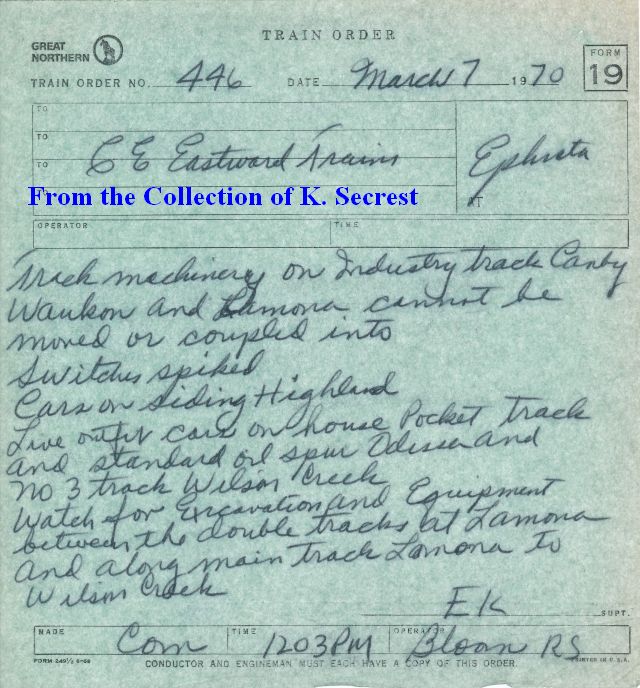 TRAIN ORDER
GREAT NORTHERN
FORM 19
TRAIN ORDER NO. 446 DATE March 7 1970
TO
TO
TO C E Eastward Trains Ephrata
AT
From the Collection of K. Secrest
OPERATOR TIME
Track machinery on Industry track Canby
Waukon and Lamona cannot be
moved or coupled into
Switches spiked
Cars on siding Highland
Live outfit cars on house Pocket track
and standard oil spur Odessa and
no 3 track Wilson Creek
Watch for Excavation and Equipment
between the double tracks at Lamona
and along main track Lamona to
Wilson Creek
EK SUPT.
MADE Com TIME 1203PM OPERATOR Sloan RS
FORM 249½ 6-68 CONDUCTOR AND ENGINEMAN MUST EACH HAVE A COPY OF THIS ORDER. PRINTED IN U.S.A.